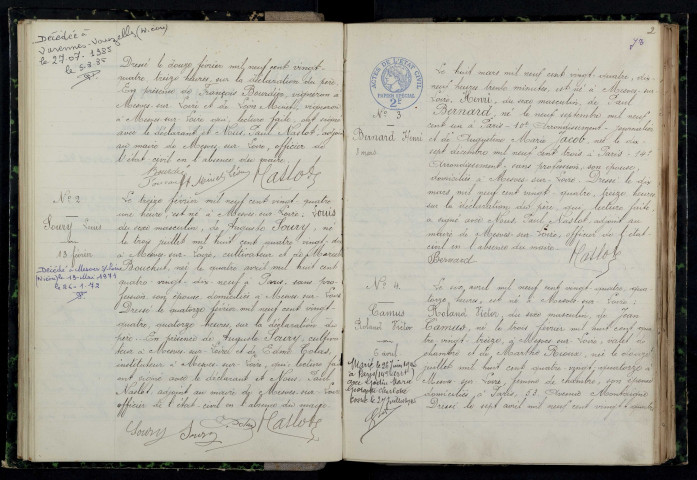 Décédé à
Varennes-Vauzelles (Nièvre)
le 27.07.1985
le 5.8.85
Dressé le douze février mil neuf cent vingt-
quatre, treize heures, sur la déclaration du père
En présence de François Bourdier, vigneron à
Mesves-sur-Loire et de Léon Minet, vigneron
à Mesves-sur-Loire qui, lecture faite, ont signé
avec le déclarant et Nous, Paul Naslot, adjoint
au maire de Mesves-sur-Loire, officier de
l'état civil en l'absence du maire
Naslot
No 2
Soury Louis
13 février
Décédé à Mesves s/Loire
(Nièvre) le 13 Mai 1971
le 26-1-72
Le treize février mil neuf cent vingt quatre
une heure, est né à Mesves-sur-Loire, Louis
du sexe masculin, de Auguste Soury, né
le trois juillet mil huit cent quatre vingt
à Mesves-sur-Loire, cultivateur et de
Bouchut, née le quatre avril mil huit cent
quatre-vingt-dix-neuf à Paris, sans pro-
fession, son épouse, domiciliés à Mesves-sur-Loire
Dressé le quatorze février mil neuf cent vingt-
quatre, quatorze heures, sur la déclaration du
père. En présence de Auguste Soury, cultiva-
teur à Mesves-sur-Loire et de
instituteur à Mesves-sur-Loire, qui, lecture faite
ont signé avec le déclarant et Nous, Paul
Naslot, adjoint au maire de Mesves-sur-Loire
officier de l'état civil en l'absence du maire
Soury Soury Naslot
2
ACTES DE L'ÉTAT CIVIL
PAPIER SPÉCIAL
2c
No 3
Bernard Henri
8 mars
Le huit mars mil neuf cent vingt-quatre, dix-
neuf heures trente minutes, est né à Mesves-sur-
Loire, Henri, du sexe masculin, de Paul
Bernard, né le neuf septembre mil neuf
cent un à Paris - 10e Arrondissement - journalier
et de Augustine Marie Jacob, née le dix
sept décembre mil neuf cent trois à Paris - 14e
Arrondissement, sans profession, son épouse,
domiciliés à Mesves-sur-Loire. Dressé le dix
mars mil neuf cent vingt-quatre, seize heures
sur la déclaration du père, qui, lecture faite,
a signé avec Nous, Paul Naslot, adjoint au
maire de Mesves-sur-Loire, officier de l'état
civil en l'absence du maire
Bernard Naslot
No 4
Camus
Roland Victor
6 avril
Marié le 28 Juin 1946
à Paris
avec
Georgette
Le six avril mil neuf cent vingt-quatre, qua-
torze heures, est né à Mesves-sur-Loire :
Roland Victor, du sexe masculin, de Jean
Camus, né le trois février mil huit cent qua-
tre vingt-treize, à Mesves-sur-Loire, valet de
chambre et de Marthe, née le onze
juillet mil huit cent quatre-vingt-quatorze à
Mesves-sur-Loire, femme de chambre, son épouse
domiciliés à Paris, 53 Avenue Montaigne
Dressé le sept avril mil neuf cent vingt-quatre